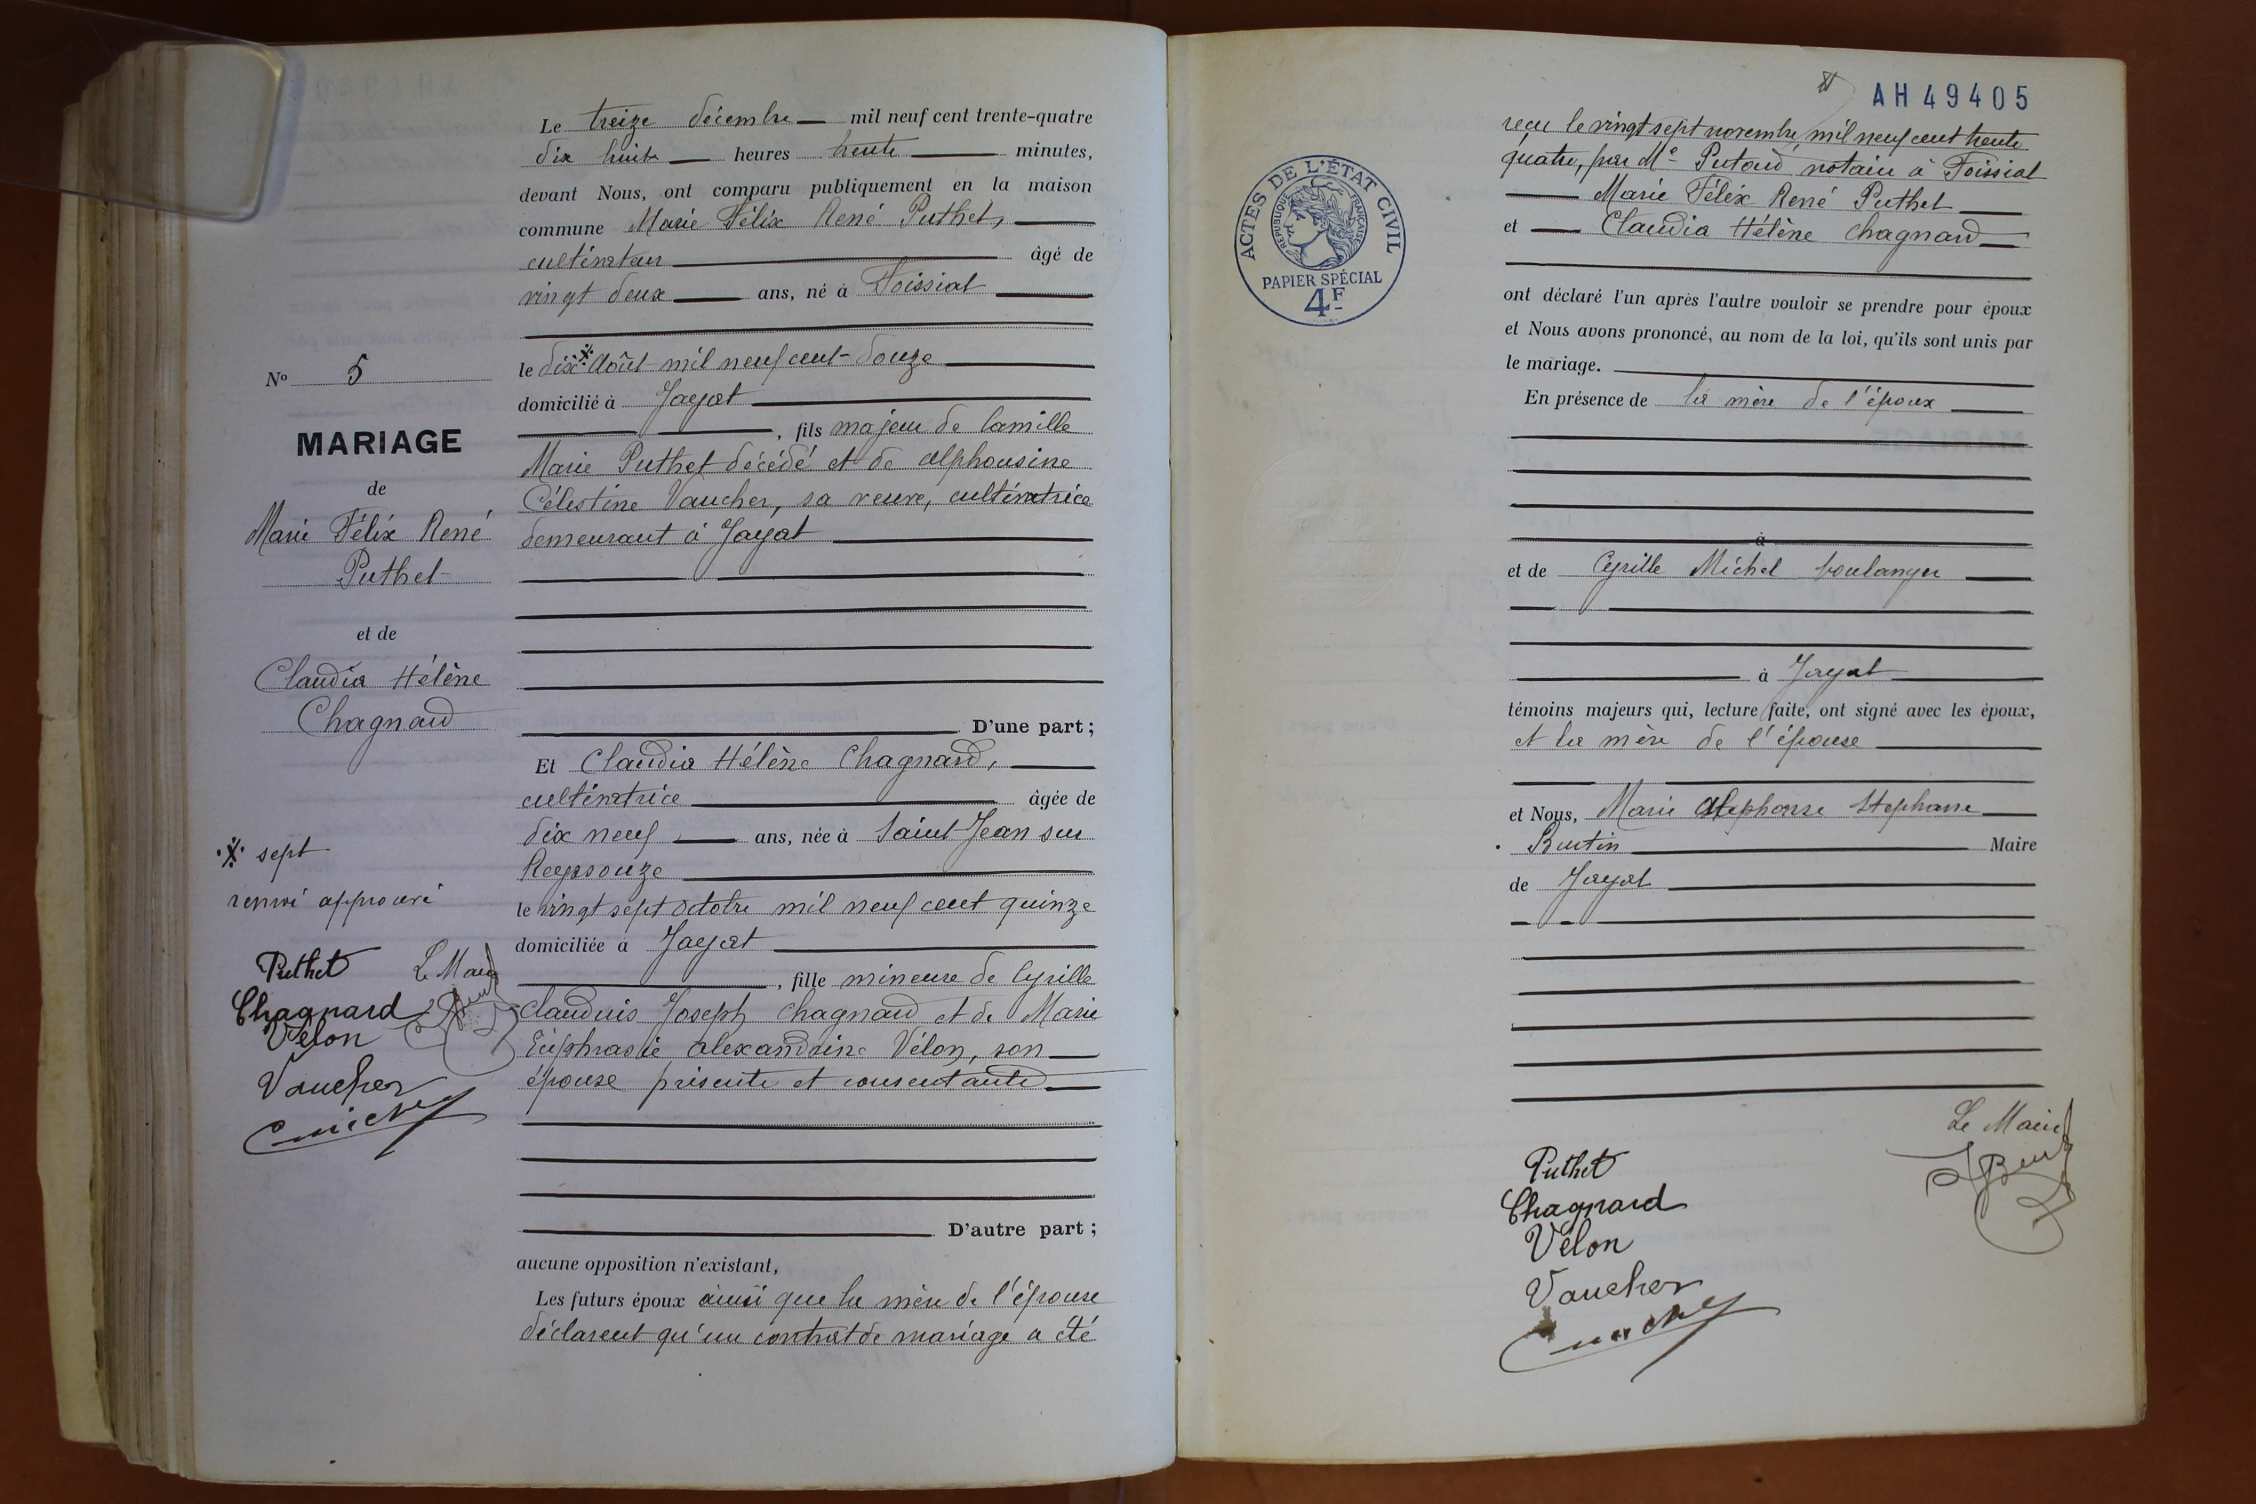 Le treize décembre mil neuf cent trente-quatre
dix huit heures trente minutes,
devant Nous, ont comparu publiquement en la maison
commune Marie Félix René Puthet,
cultivateur âgé de
vingt deux ans, né à Foissiat
le dix ※ Août mil neuf cent douze
domicilié à Jayat
, fils majeur de Camille
Marie Puthet décédé et de Alphonsine
Célestine Vaucher, sa veuve, cultivatrice
demeurant à Jayat
D'une part ;
Et Claudia Hélène Chagnard,
cultivatrice âgée de
dix neuf ans, née à Saint-Jean sur
Reyssouze
le vingt sept octobre mil neuf cent quinze
domiciliée à Jayat
, fille mineure de Cyrille
Claudius Joseph Chagnard et de Marie
Euphrasie Alexandrine Vélon, son
épouse présente et consentante
D'autre part ;
aucune opposition n'existant,
Les futurs époux ainsi que la mère de l'épouse
déclarent qu'un contrat de mariage a été
No 5
MARIAGE
de
Marie Félix René
Puthet
et de
Claudia Hélène
Chagnard
※ sept
renvoi approuvé
Puthet Le Maire
Chagnard
Vélon
Vaucher
Michel
AH 49405
ACTES DE L'ÉTAT CIVIL
RÉPUBLIQUE FRANÇAISE
PAPIER SPÉCIAL
4F
reçu le vingt sept novembre mil neuf cent trente
quatre, par Me Putoud, notaire à Foissiat
Marie Félix René Puthet
et Claudia Hélène Chagnard
ont déclaré l'un après l'autre vouloir se prendre pour époux
et Nous avons prononcé, au nom de la loi, qu'ils sont unis par
le mariage.
En présence de la mère de l'époux
à
et de Cyrille Michel boulanger
à Jayat
témoins majeurs qui, lecture faite, ont signé avec les époux,
et la mère de l'épouse
et Nous, Marie Alphonse Stephane
Burtin Maire
de Jayat
Le Maire
Puthet
Chagnard
Vélon
Vaucher
Michel